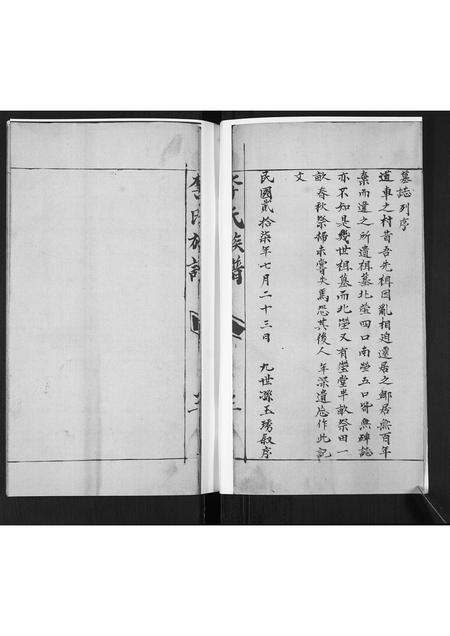 墓誌列序
道車之村昔吾先祖因亂相迫遷居之鄉居無百年
棄而遷之所遺祖墓北塋四口南塋五口皆無碑誌
亦不知是幾世祖墓而北塋又有塋堂半畝祭田一
畝春秋祭掃未嘗失焉恐其後人年深遺忘作此記
文
民國貳拾柒年七月二十三日 九世孫玉琇叙序
李氏族譜
李氏族譜